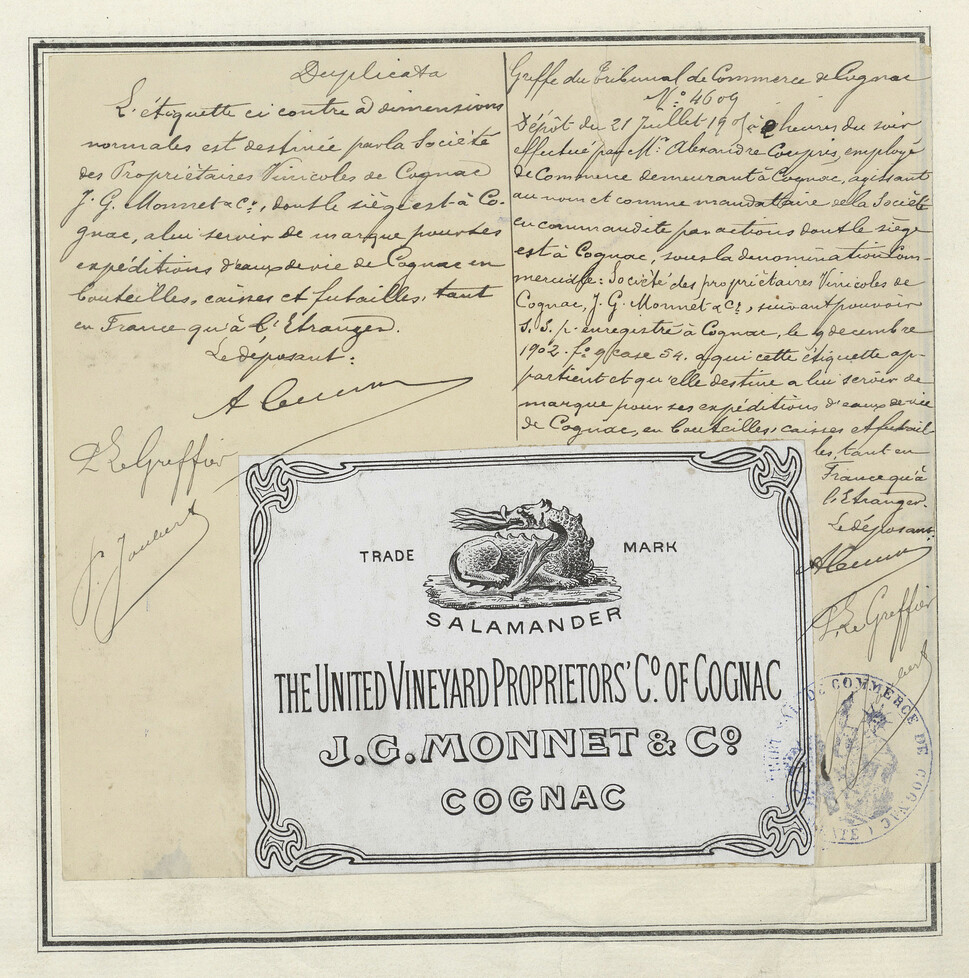 Duplicata
L'étiquette ci contre à dimensions
normales est destinée par la Société
des Propriétaires Vinicoles de Cognac
J. G. Monnet & Cº, dont le siège est à Co-
gnac, a lui servir de marque pour ses
expéditions d'eaux de vie de Cognac en
bouteilles, caisses et futailles, tant
en France qu'à l'Etranger.
Le déposant:
P. Le Greffier
Greffe du Tribunal de Commerce de Cognac
Nº 4609
Dépôt du 21 Juillet 190 à 2 heures du soir
effectué par Mr. Alexandre Couprie, employé
de Commerce demeurant à Cognac, agissant
au nom et comme mandataire de la Société
en commandite par actions dont le siège
est à Cognac, sous la denomination Com-
merciale: Société des propriétaires Vinicoles de
Cognac, J. G. Monnet & Cº, suivant pouvoir
S. S. p. enregistré à Cognac, le 9 decembre
1902. fº 9 case 54. a qui cette étiquette ap-
partient et qu'elle destine a lui servir de
marque pour ses expéditions d'eaux de vie
de Cognac, en bouteilles, caisses et futail
les, tant en
France qu'à
l'Etranger.
Le déposant
P. Le Greffier
TRADE MARK
SALAMANDER
THE UNITED VINEYARD PROPRIETORS' Cº. OF COGNAC
J.G. MONNET & Cº
COGNAC
TRIBUNAL DE COMMERCE DE COGNAC